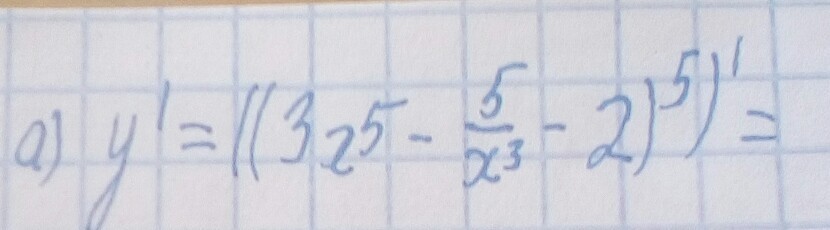 a) y' = ((3x⁵ - 5/x³ - 2)⁵)' =